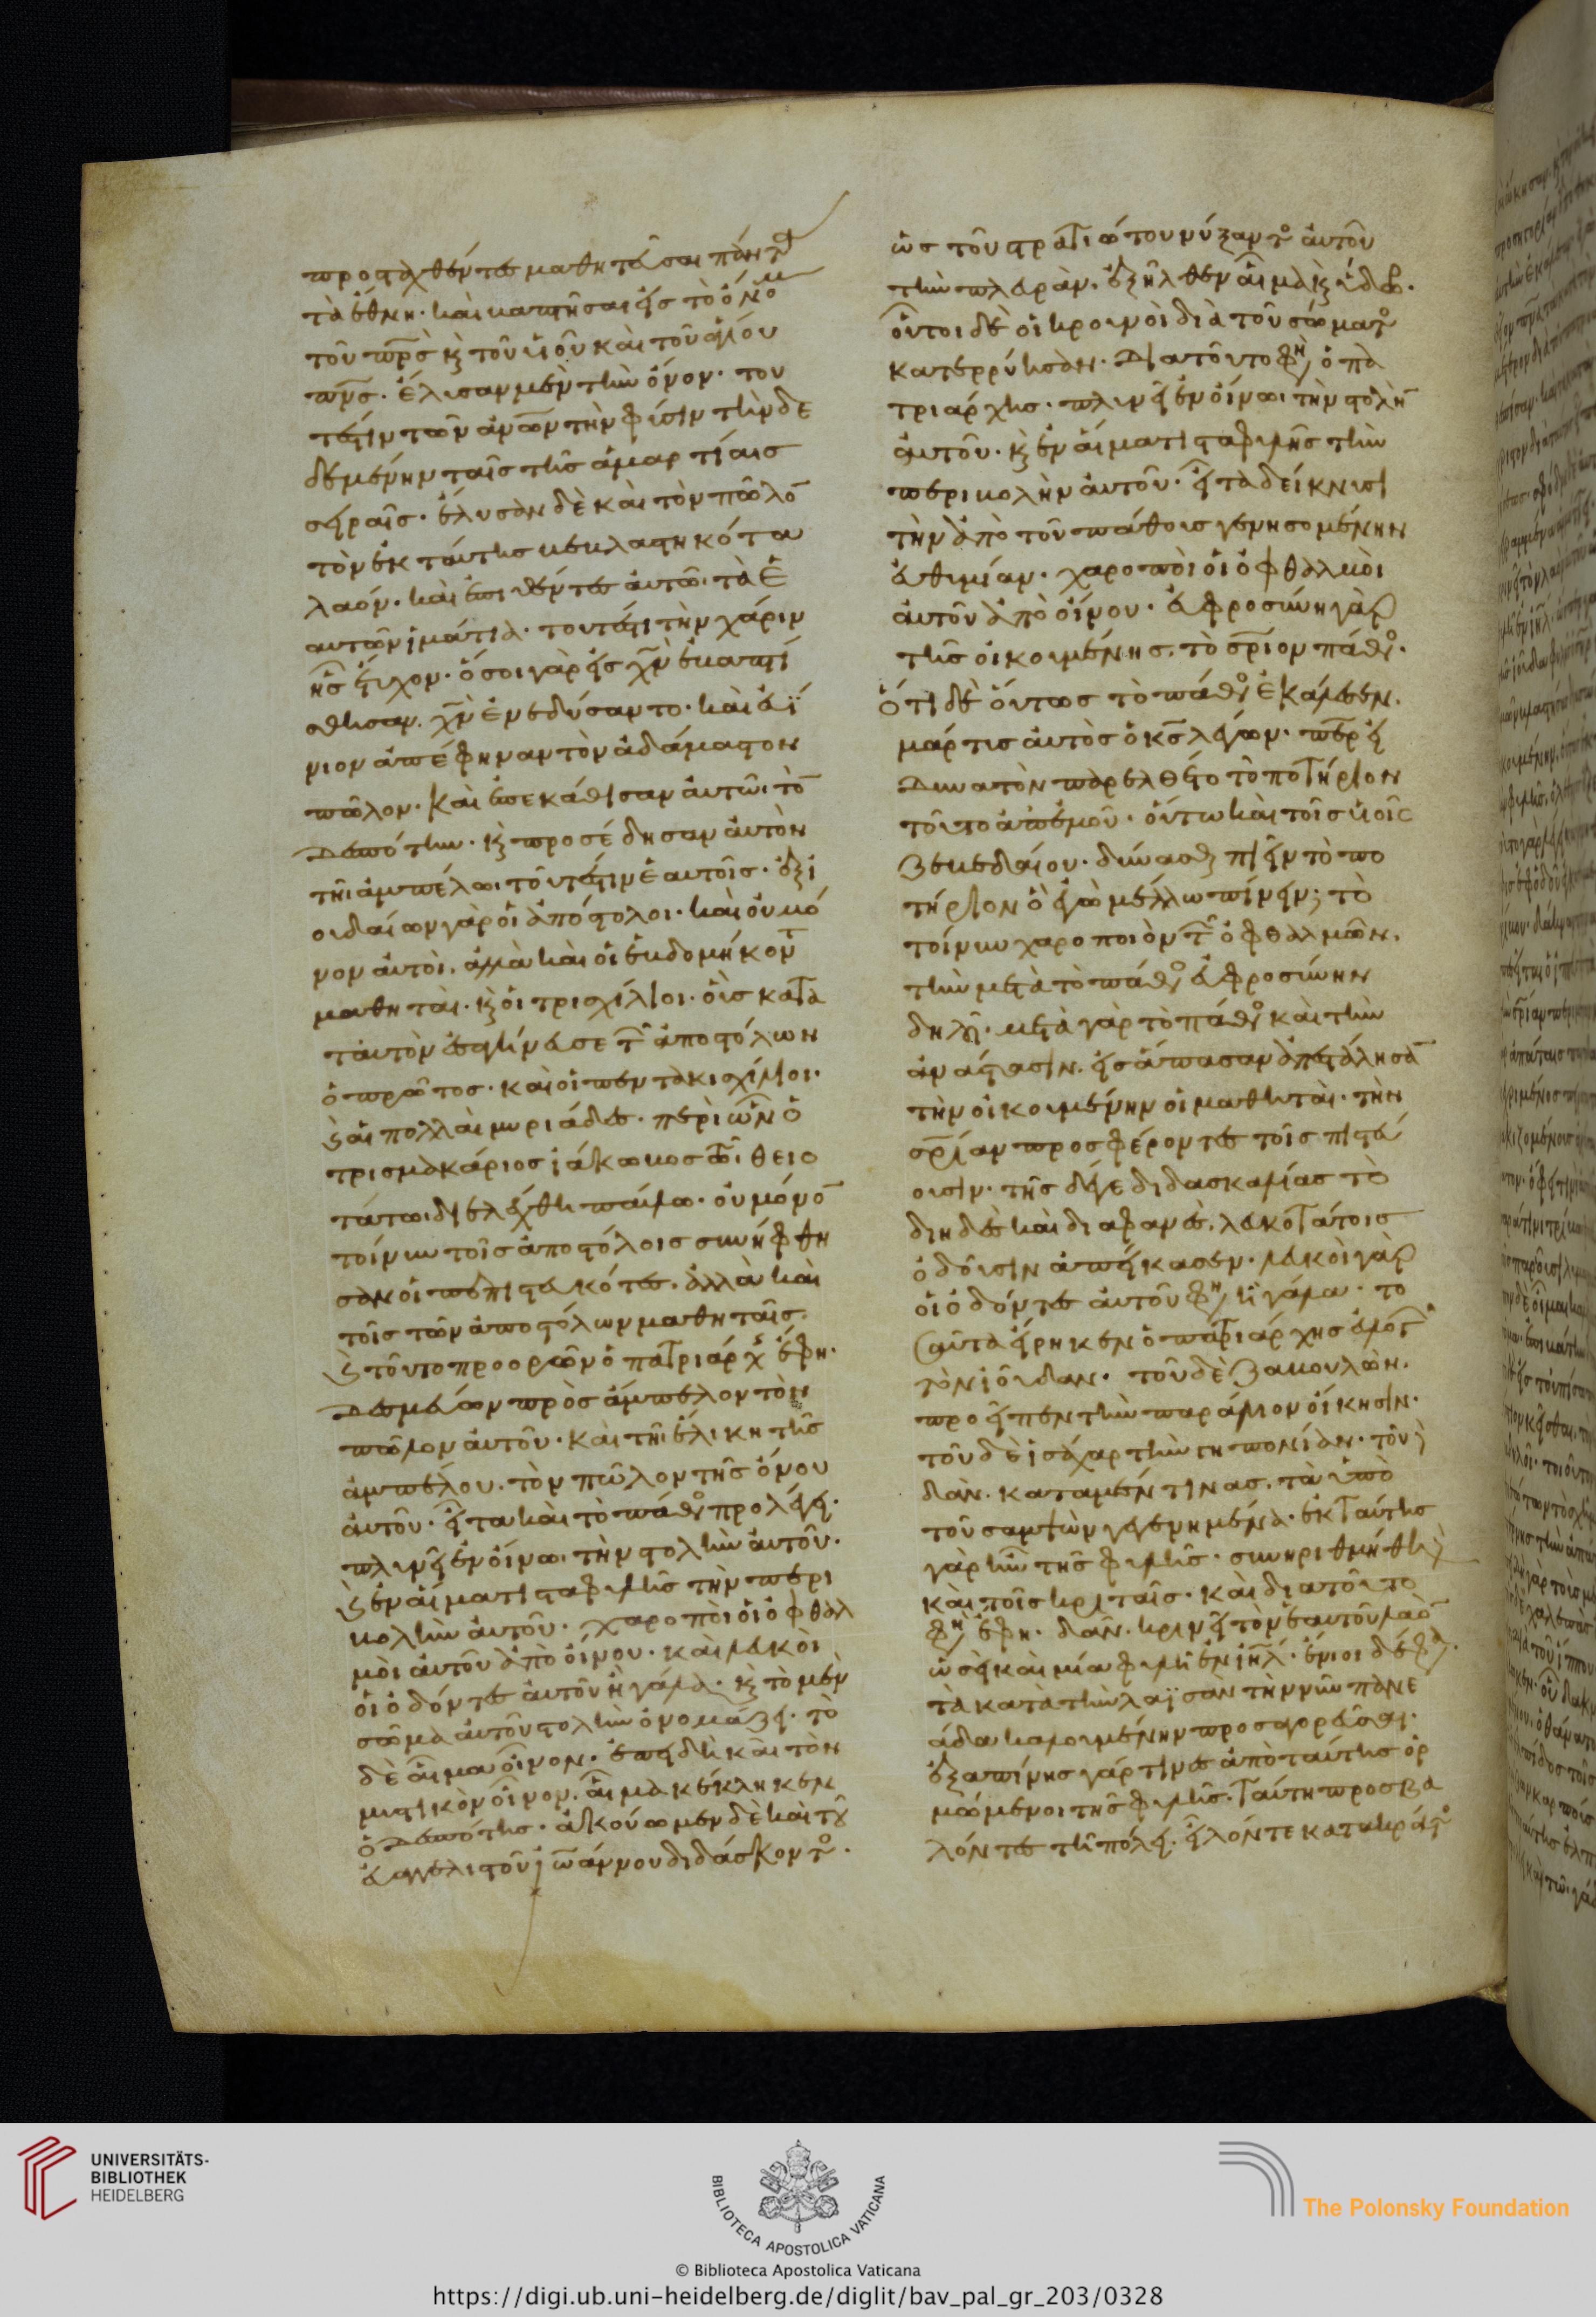 προσταχθέντες μαθητεῦσαι πάντα
τὰ ἔθνη· καὶ βαπτῆσαι εἰς τὸ ὄνομ
τοῦ πρ̅ς̅ κ̀ τοῦ υἱοῦ καὶ τοῦ ἁγίου
πν̅ς̅. ἔλυσαν μὲν τὴν ὄνον· του
τέστιν τῶν ἀν̅ω̅ν̅ τὴν φύσιν τὴν δε
δεμένην ταῖς τῆς ἁμαρτίαις
σειραῖς. ἔλυσαν δὲ καὶ τὸν πῶλο̅
τὸν ἐκ ταύτης βεβλαστηκότα
λαόν. καὶ ἐπιθέντες αὐτῶ τὰ ἑ
αυτῶν ἱμάτια· τουτέστι τὴν χάριν
ἧς ἔτυχον. ὅσοι γὰρ εἰς χ̅ν̅ ἐβαπτί
σθησαν. χ̅ν̅ ἐνεδύσαντο. καὶ εὐή
νιον ἀπέφηναν τὸν ἀδάμαστον
πῶλον. καὶ ἐπεκάθισαν αὐτῶι τὸ̅
δεσπότην. κ̀ προσέδησαν αὐτὸν
τῆι ἀμπέλωι τουτέστιν ἑαυτοῖς. ἐξ ἰ
ουδαίων γὰρ οἱ ἀπόστολοι. καὶ οὐ μό
νον αὐτοὶ. ἀλλὰ καὶ οἱ ἑβδομήκοντ
μαθηταὶ. κ̀ οἱ τρισχίλιοι. οὓς κατὰ
ταυτὸν ἐσαγήνευσε τ̑ ἀποστόλων
ὁ πρῶτος. καὶ οἱ πεντακισχίλιοι.
κ̀ αἱ πολλαὶ μυριάδες. περὶ ὧν ὁ
τρισμακάριος ἰάκωβος τῶι θειο
τάτωι διελέχθη παύλω. οὐ μόνο̅
τοίνυν τοῖς ἀποστόλοις συνήφθη
σαν οἱ πεπιστευκότες. ἀλλὰ καὶ
τοῖς τῶν ἀποστόλων μαθηταῖς.
κ̀ τοῦτο προορῶν ὁ πατριάρχ ἔφη.
Δεσμεύων πρὸς ἄμπελον τὸν
πῶλον αὐτοῦ. καὶ τῆι ἕλικη τῆς
ἀμπέλου. τὸν πῶλον τῆς ὄνου
αὐτοῦ. εἶτα καὶ τὸ πάθος προλέγει.
πλυνεῖ ἐν οἴνωι τὴν στολὴν αὐτοῦ.
κ̀ ἐν αἵματι σταφυλῆς τὴν περι
βολὴν αὐτοῦ. χαροποὶ οἱ ὀφθαλ
μοὶ αὐτοῦ ἀπὸ οἴνου. καὶ λευκοὶ
οἱ ὀδόντες αὐτοῦ ἢ γάλα. κ̀ τὸ μὲν
σῶμα αὐτοῦ στολὴν ὀνομάζει. τὸ
δὲ αἷμα οἶνον. ἐπειδὴ καὶ τὸν
μυστικὸν οἶνον. αἷμα κέκληκεν
ὁ δεσπότης. ἀκούωμεν δὲ καὶ τοῦ
εὐαγγελιστοῦ ἰωάννου διδάσκοντος.
ὡς τοῦ στρατιώτου νύξαντος αὐτοῦ
τὴν πλευράν. ἐξῆλθεν αἷμα κ̀ ὕδωρ.
οὗτοι δὲ οἱ κρουνοὶ διὰ τοῦ σώματος
κατερρύησαν. Διατοῦτο φη, ὁ πα
τριάρχης. πλυνεῖ ἐν οἴνωι τὴν στολὴ̅
αὐτοῦ. κ̀ ἐν αἵματι σταφυλῆς τὴν
περιβολὴν αὐτοῦ. εἶτα δείκνυσι
τὴν ἀπὸ τοῦ πάθους γενησομένην
εὐθυμίαν. χαροποὶ οἱ ὀφθαλμοὶ
αὐτοῦ ἀπὸ οἴνου. εὐφροσύνη γὰρ
τῆς οἰκουμένης. τὸ σ̅ρ̅ιον πάθος.
ὅτι δὲ οὕτως τὸ πάθος ἐκάλεσεν.
μάρτις αὐτὸς ὁ κ̅ς̅ λέγων. π̅ε̅ρ̅ εἰ
Δυνατὸν παρελθέτο τὸ ποτήριον
τοῦτο ἀπεμοῦ. οὕτω καὶ τοῖς υἱοῖς
ζεβεδαίου. δύνασθε πιεῖν τὸ πο
τήριον ὃ ἐγὼ μέλλω πίνειν; τὸ
τοίνυν χαροποιὸν τ̑ ὀφθαλμῶν.
τὴν μετὰ τὸ πάθος εὐφροσύνην
δηλοῖ. μετὰ γὰρ τὸ πάθος καὶ τὴν
ἀνάστασιν. εἰς ἅπασαν ἀπεστάλησα̅
τὴν οἰκουμένην οἱ μαθηταὶ. τὴν
σ̅ρ̅ίαν προσφέροντες τοῖς πιστεύ
ουσιν. τῆς δέγε διδασκαλίας τὸ
διηδὲς καὶ διαφανὲς. λευκοτάτοις
ὀδοῦσιν ἀπείκασεν. λευκοὶ γὰρ
οἱ ὀδόντες αὐτοῦ φη, ἢ γάλα. το
σαῦτα εἴρηκεν ὁ πατριάρχης εὐλογ
τὸν ἰούδαν. τοῦ δὲ ζαβουλὼν.
προεῖπεν τὴν παράλιον οἴκησιν.
τοῦ δὲ ἰσάχαρ τὴν γηπονίαν. τοῦ
δὰν. καταμέν τινας. τὰ ὑπὸ
τοῦ σαμψὼν γεγενημένα. ἐκ ταύτης
γὰρ ἦν τῆς φυλῆς. συνηριθμήθη
καὶ τοῖς κριταῖς. καὶ διατοῦτο
φη, ἔφη. δὰν. κρινεῖ τὸν ἑαυτοῦ λαὸ̅
ὡσεὶ καὶ μίαν φυλὴ ἐν ι̅η̅λ̅. ἔνιοι δέ φ.
τὰ κατὰ τὴν λαϊσὰν τὴν νῦν πανε
άδα καλουμένην προσαγορεῦσθαι.
ἐξαπίνης γάρ τινες ἀπὸ ταύτης ὁρ
μώμενοι τῆς φυλῆς. ταύτη προσβα
λόντες τῆ πόλει. εἷλόν τε κατακράτος
UNIVERSITÄTS-
BIBLIOTHEK
HEIDELBERG
BIBLIOTECA APOSTOLICA VATICANA
The Polonsky Foundation
© Biblioteca Apostolica Vaticana
https://digi.ub.uni-heidelberg.de/diglit/bav_pal_gr_203/0328